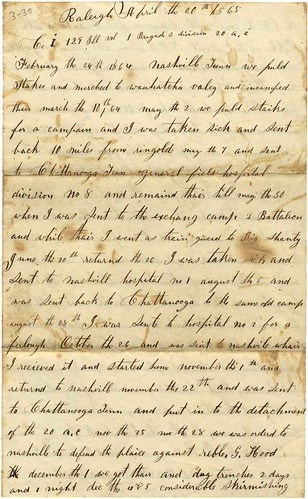 3-30
Raleigh April the 20th 1865
C. I 129 Ill vol 1 Brigade 3 division 20 a, c
February th 24th 1864 nashvill Tenn we puld
Stakes and marched to wauhatcha valey and incamped
thair march th 10th, 64 may th 2 we puld staiks
for a campain and I was taken sick and sent
back 10 miles from ringold may th 7 and sent
to Chattanooga Tenn general field hospital
division No 8 and remaind thair till may th 30
when I was sent to the exchang camp 2 Battalion
and while thair I went as train guard to Big Shanty
June th 20th returnd th 26 I was taken sick and
sent to nashvill hospital no 1 august th 5 and
was sent back to Chattanooga to the same old camp
august th 28th I was sent to hospital no 2 for a
furlough October th 26 and was sent to nashvill whair
I recieved it and started home november th 1th and
returnd to nashvill november th 22th and was sent
to Chattanooga Tenn and put in to the detachment
of the 20 a, c nov th 25 nov th 28 we was orderd to
nashvill to defend the plaice against rebble, G. Hood
december th 1 we got thair and dug trenches 2 days
and 1 night dec th 4 & 5 considerable skirmishing